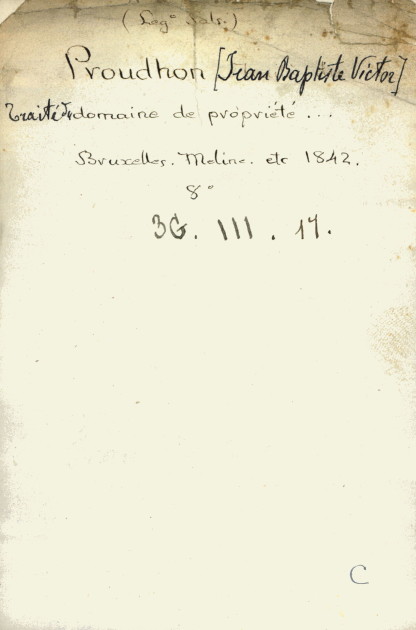 (Leg° Sals.)
Proudhon [Jean Baptiste Victor]
Traité du domaine de propriété ...
Bruxelles. Meline. etc 1842.
8°
3G. III. 17.
C